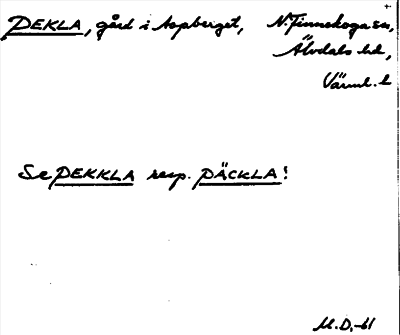 PEKLA, gård i Aspberget, N. Finnskoga sn,
Älvdals hd,
Värml. l
Se PEKKLA resp. PÄCKLA!
M.D.-61